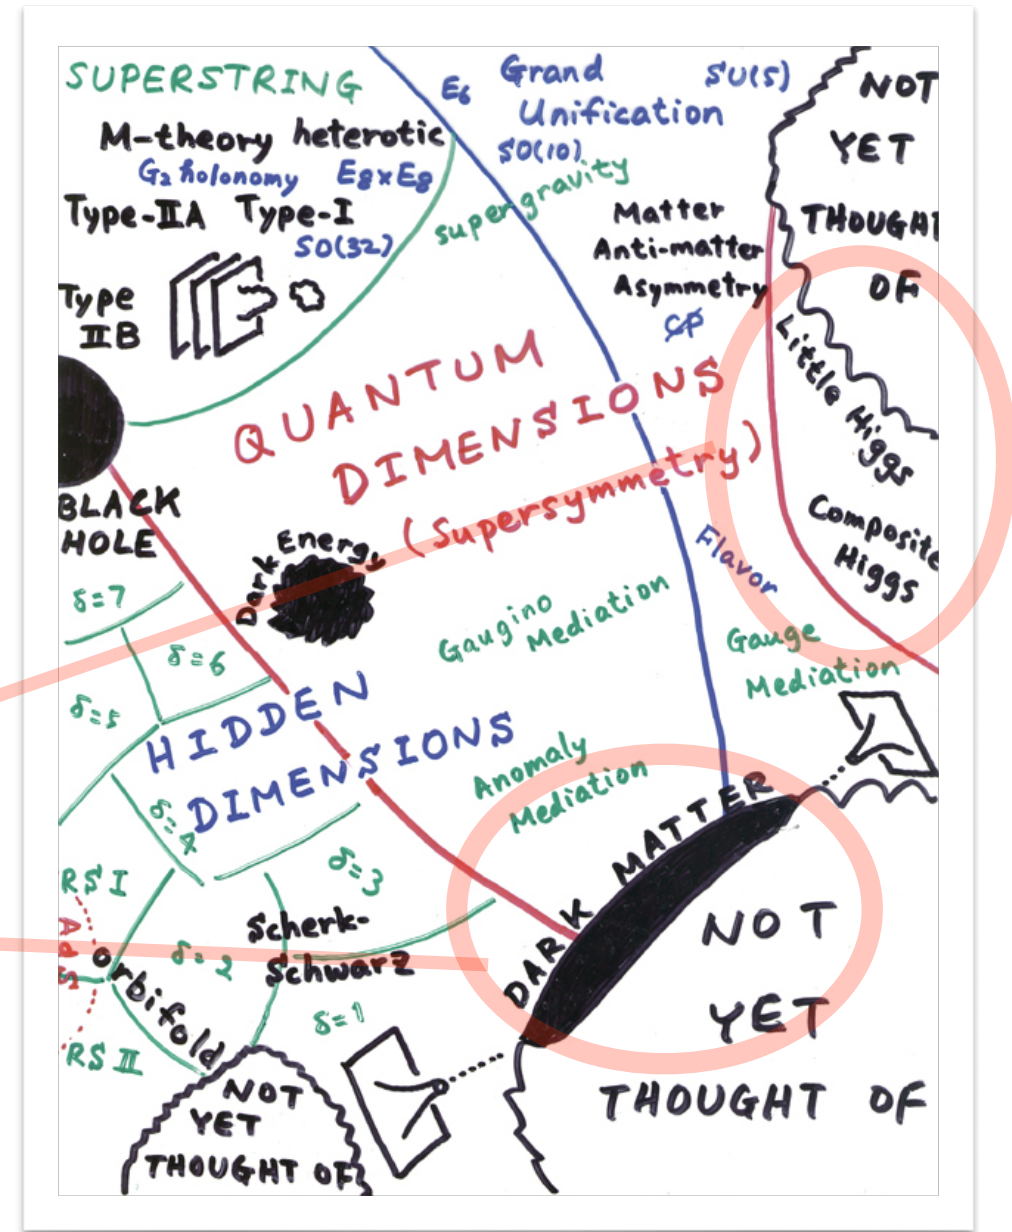 SUPERSTRING
M-theory heterotic
G₂ holonomy E8xE8
Type-IIA Type-I
SO(32)
Type
IIB
E6
Grand
Unification
SU(5)
SO(10)
supergravity
Matter
Anti-matter
Asymmetry
CP
NOT
YET
THOUGHT
OF
Little Higgs
Composite
Higgs
QUANTUM
DIMENSIONS
(Supersymmetry)
BLACK
HOLE
Dark Energy
Flavor
Gaugino
Mediation
Gauge
Mediation
Anomaly
Mediation
δ=7
δ=6
δ=5
HIDDEN
DIMENSIONS
δ=4
δ=3
RS I
AdS
Orbifold
RS II
δ=2
Scherk-
Schwarz
δ=1
DARK MATTER
NOT
YET
THOUGHT OF
NOT
YET
THOUGHT OF